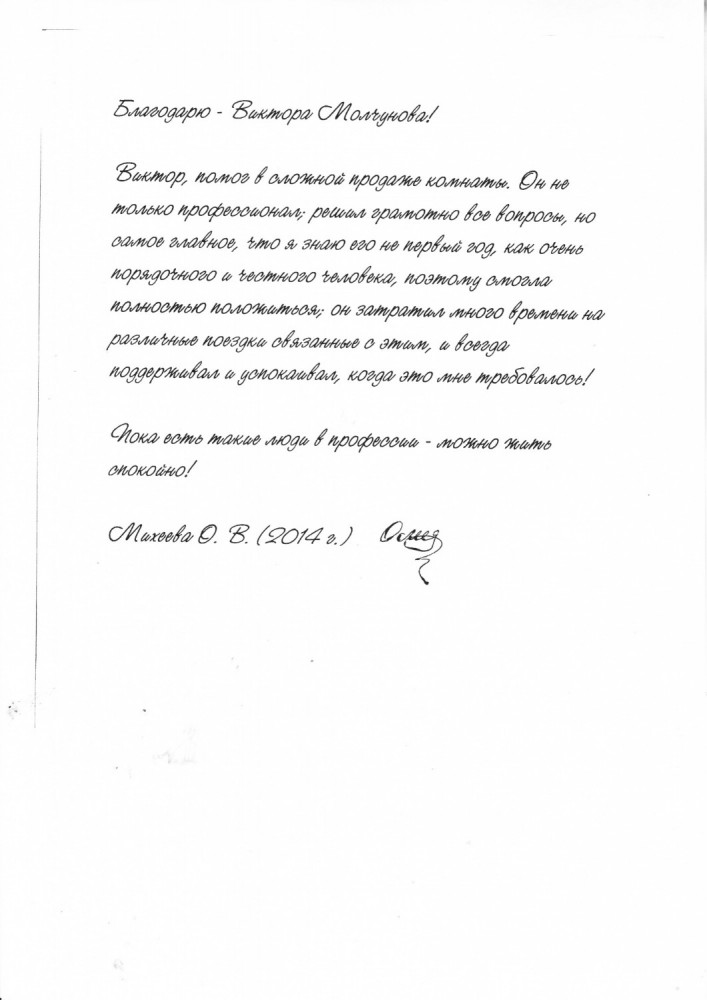 Благодарю - Виктора Молчунова!
Виктор, помог в сложной продаже комнаты. Он не
только профессионал; решил грамотно все вопросы, но
самое главное, что я знаю его не первый год, как очень
порядочного и честного человека, поэтому смогла
полностью положиться; он затратил много времени на
различные поездки связанные с этим, и всегда
поддерживал и успокаивал, когда это мне требовалось!
Пока есть такие люди в профессии - можно жить
спокойно!
Михеева О. В. (2014 г.)